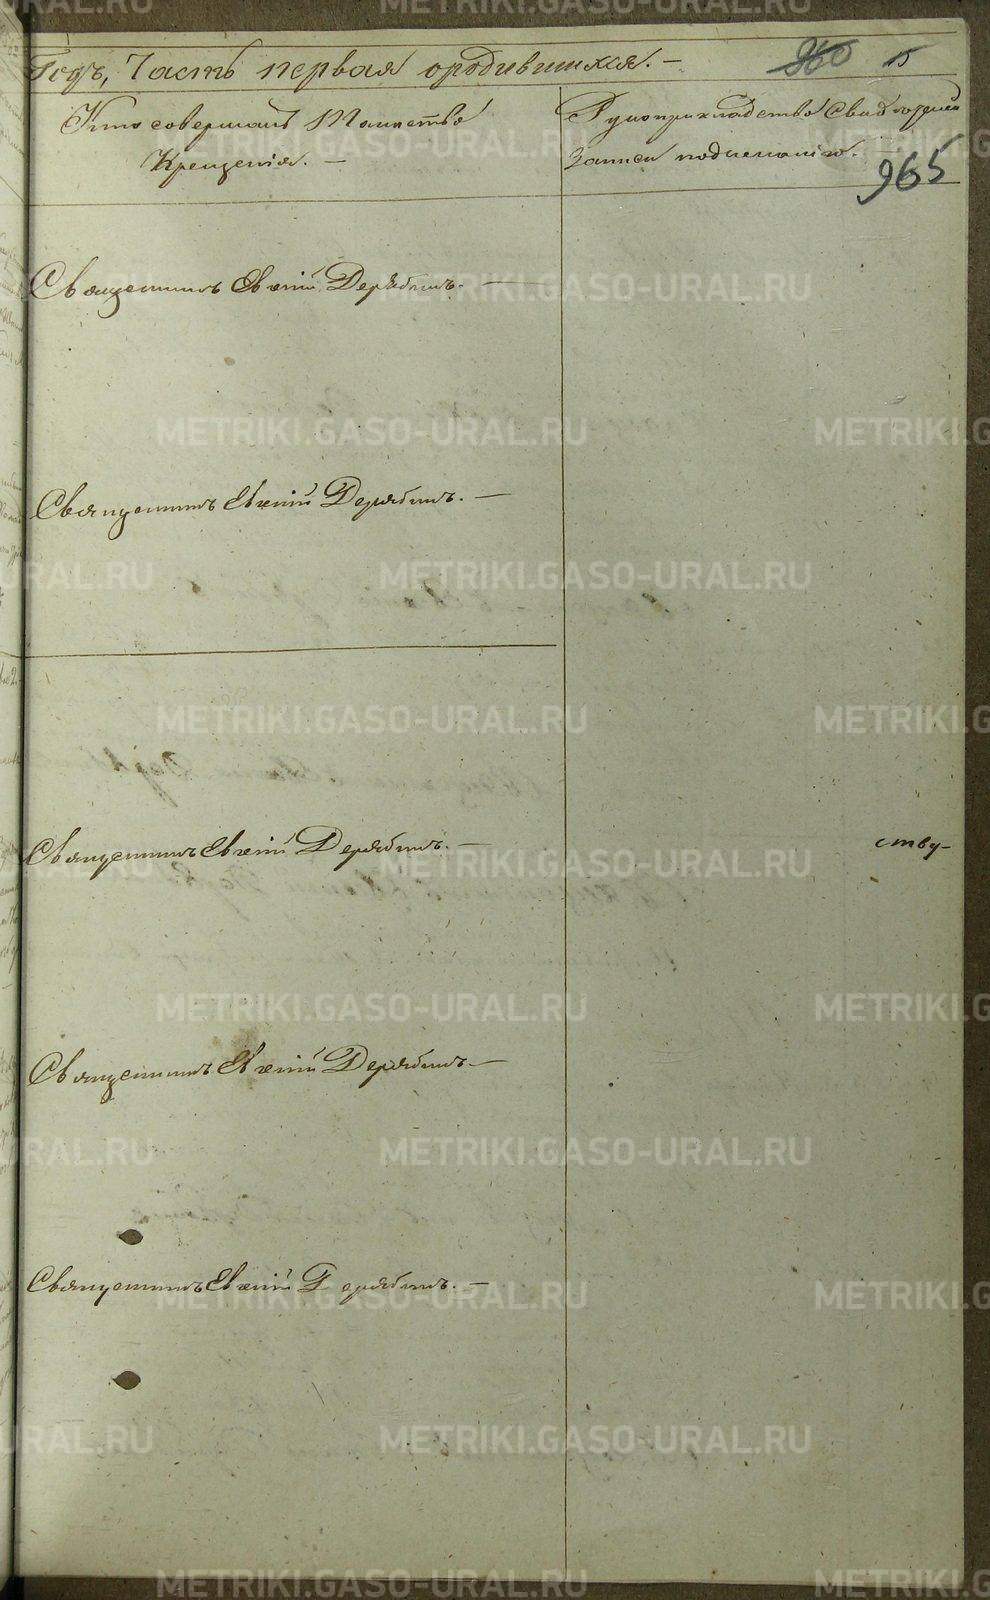 Годъ, Часть первая ородившихся. —
960 15
Кто совершалъ Таинство
Крещенія. —
Рукоприкладство Свидѣтелей
записи по желанію.
965
Священникъ Евѳимій Дерябинъ. —
Священникъ Евѳимій Дерябинъ. —
Священникъ Евѳимій Дерябинъ. —
ству-
Священникъ Евѳимій Дерябинъ. —
Священникъ Евѳимій Дерябинъ. —
METRIKI.GASO-URAL.RU